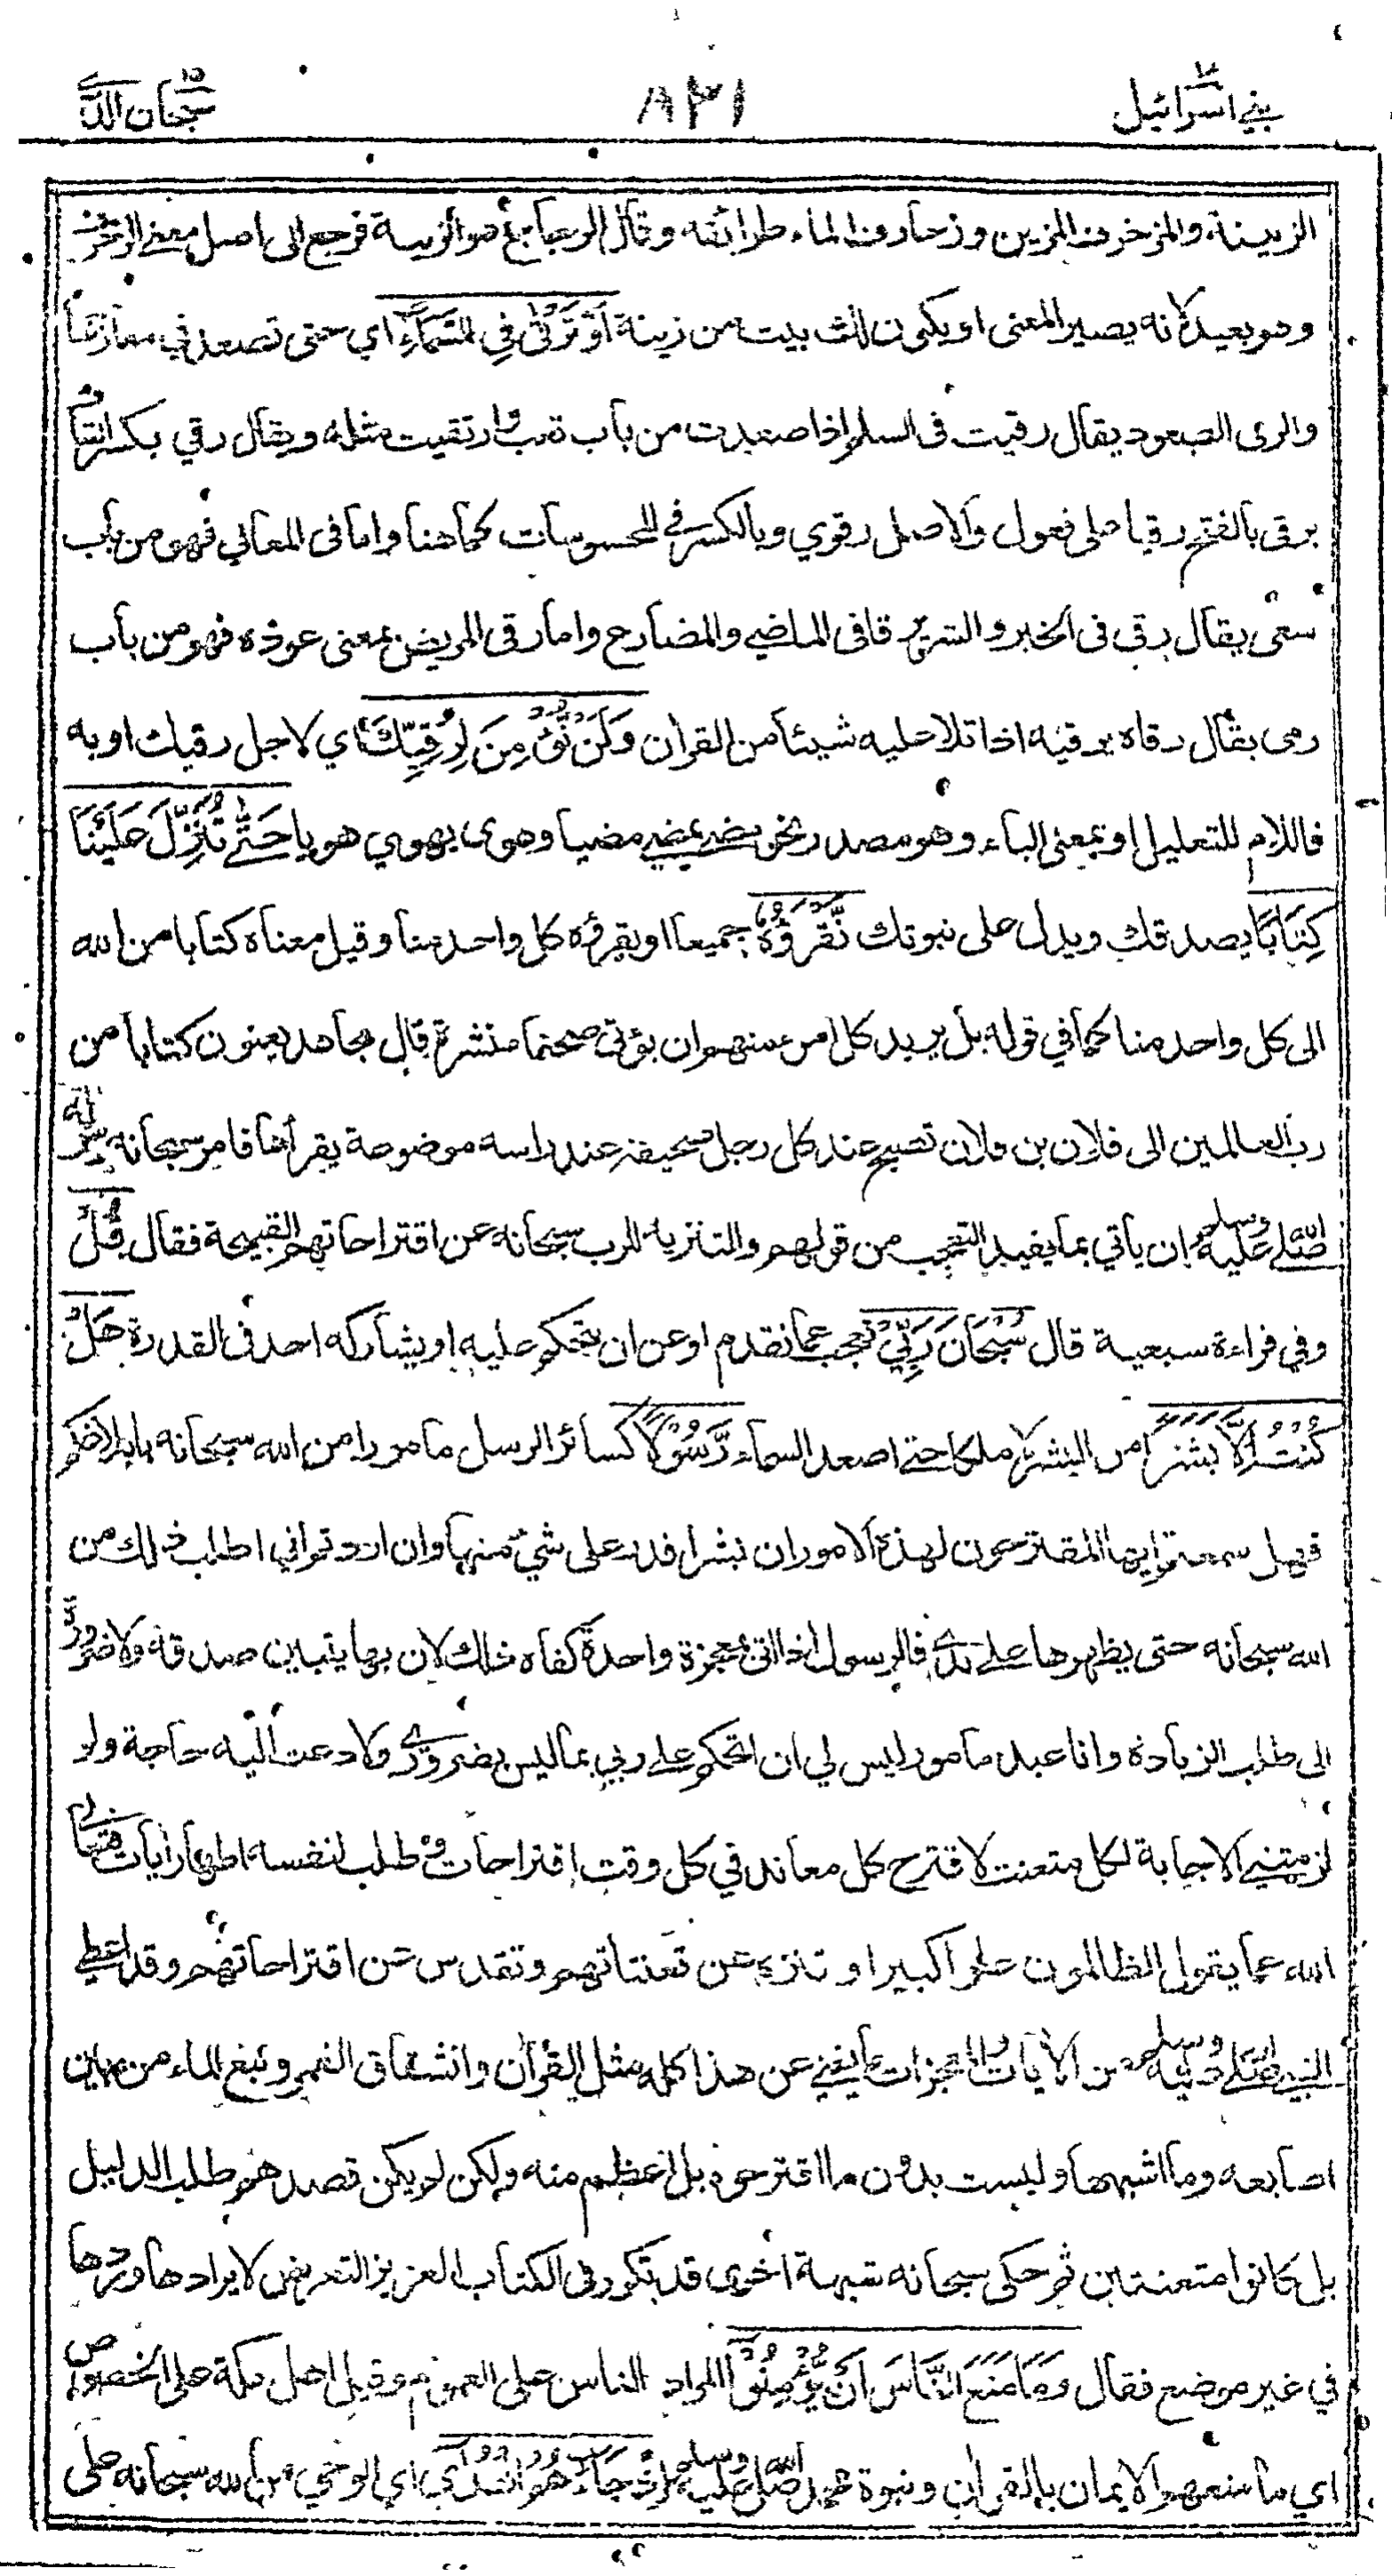 بني اسرائيل ١٧
٨٣١
سبحان الذي ١٥
الزينة والمزخرف المزين وزخارف الماء طرائقه وقال الزجاج هو الزينة فرجع الى اصل معنى الزخرف
وهو بعيد لانه يصير المعنى او يكون لك بيت من زينة أَوْ تَرْقٰى فِي السَّمَآءِ اي حتى تصعد في معارجها
والرقي الصعود يقال رقيت في السلم اذا صعدت من باب تعب وارتقيت مثله ويقال رقي بكسر القاف
يرقى بالفتح رقيا على فعول والاصل رقوي وبالكسر في المحسوسات كما هنا واما في المعاني فهو من باب
سعى يقال رقى في الخير والشر يرقا في الماضي والمضارع واما رقى المريض بمعنى عوذه فهو من باب
رمى يقال رقاه يرقيه اذا تلا عليه شيئا من القرآن وَلَنْ نُّؤْمِنَ لِرُقِيِّكَ اي لاجل رقيك او به
فاللام للتعليل او بمعنى الباء وهو مصدر نحو مضى يمضي مضيا وهوى يهوي هويا حَتّٰى تُنَزِّلَ عَلَيْنَا
كِتَابًا يصدقك ويدل على نبوتك نَّقْرَؤُهٗ جميعا او يقرؤه كل واحد منا وقيل معناه كتابا من الله
الى كل واحد منا كما في قوله بل يريد كل امرء منهم ان يؤتى صحفا منشرة قال مجاهد يعنون كتابا من
رب العالمين الى فلان بن فلان تصبح عند كل رجل صحيفة عند راسه موضوعة يقرأها فامر سبحانه رسوله
صلى الله عليه وسلم ان ياتي بما يفيد التعجب من قولهم والتنزيه للرب سبحانه عن اقتراحاتهم القبيحة فقال قُلْ
وفي قراءة سبعية قال سُبْحَانَ رَبِّيْ تعجب عما تقدم او عن ان يتحكم عليه او يشاركه احد في القدرة هَلْ
كُنْتُ اِلَّا بَشَرًا من البشر لا ملكا حتى اصعد السماء رَّسُوْلًا كسائر الرسل مامورا من الله سبحانه بابلاغكم
فهل سمعتم ايها المقترحون لهذه الامور ان بشرا قدر على شيء منها وان اردتم اني اطلب ذلك من
الله سبحانه حتى يظهرها على يدي فالرسول اذا اتى بمعجزة واحدة كفاه ذلك لان بها يتبين صدقه ولا ضرورة
الى طلب الزيادة وانا عبد مامور ليس لي ان اتحكم على ربي بما ليس بضروري ولا دعت اليه حاجة ولو
لزمتني الاجابة لكل متعنت لاقترح كل معاند في كل وقت اقتراحات وطلب لنفسه اظهار ايات فتعالى
الله عما يقول الظالمون علوا كبيرا وتنزه عن تعنتاتهم وتقدس عن اقتراحاتهم وقد اعطي
النبي صلى الله عليه وسلم من الآيات والمعجزات ما يغني عن هذا كله مثل القرآن وانشقاق القمر ونبع الماء من بين
اصابعه وما اشبهها وليست بدون ما اقترحوه بل اعظم منه ولكن لم يكن قصدهم طلب الدليل
بل كانوا متعنتين ثم حكى سبحانه شبهة اخرى قد تكرر في الكتاب العزيز التعرض لايرادها وردها
في غير موضع فقال وَمَا مَنَعَ النَّاسَ اَنْ يُّؤْمِنُوْا المراد الناس على العموم وقيل اهل مكة على الخصوص
اي ما منعهم الايمان بالقرآن ونبوة محمد صلى الله عليه وسلم اِذْ جَآءَهُمُ الْهُدٰى اي الوحي من الله سبحانه على